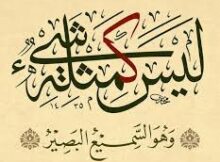 ليس كمثله شيء
١٤٣٥
وهو السميع البصير